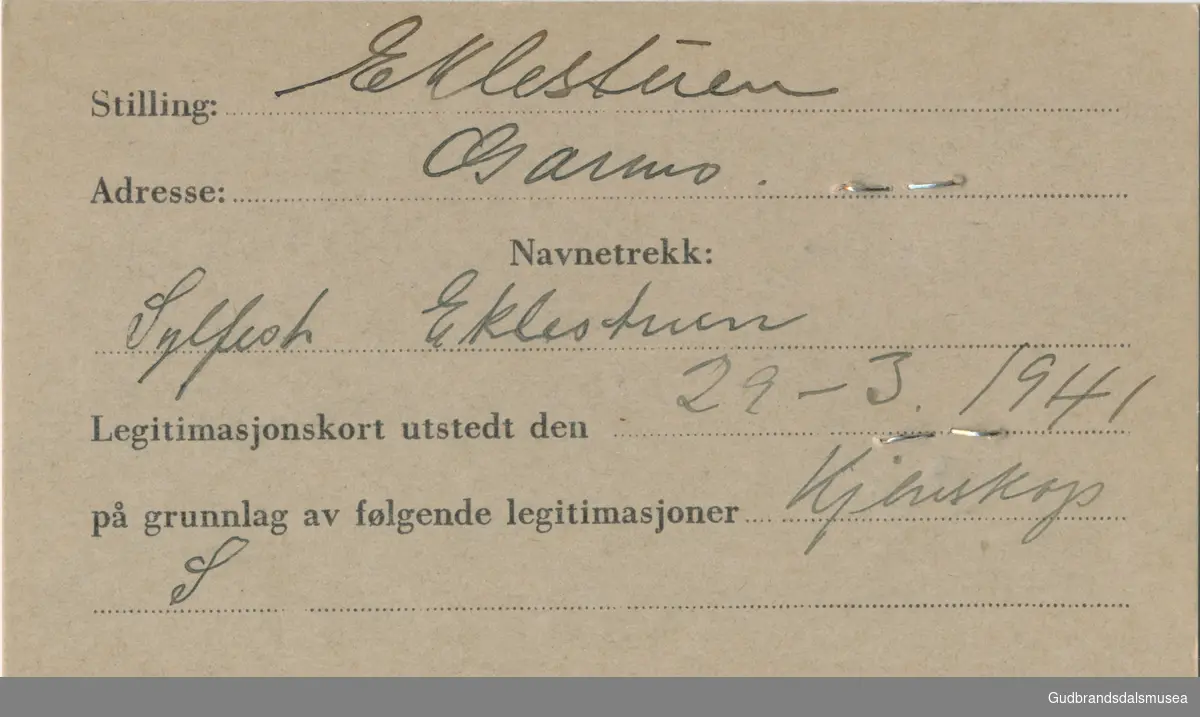 Stilling: Eklestuen
Adresse: Garmo.
Navnetrekk:
Sylfest Eklestuen
Legitimasjonskort utstedt den 29-3. 1941
på grunnlag av følgende legitimasjoner Kjenskap
S
Gudbrandsdalsmusea